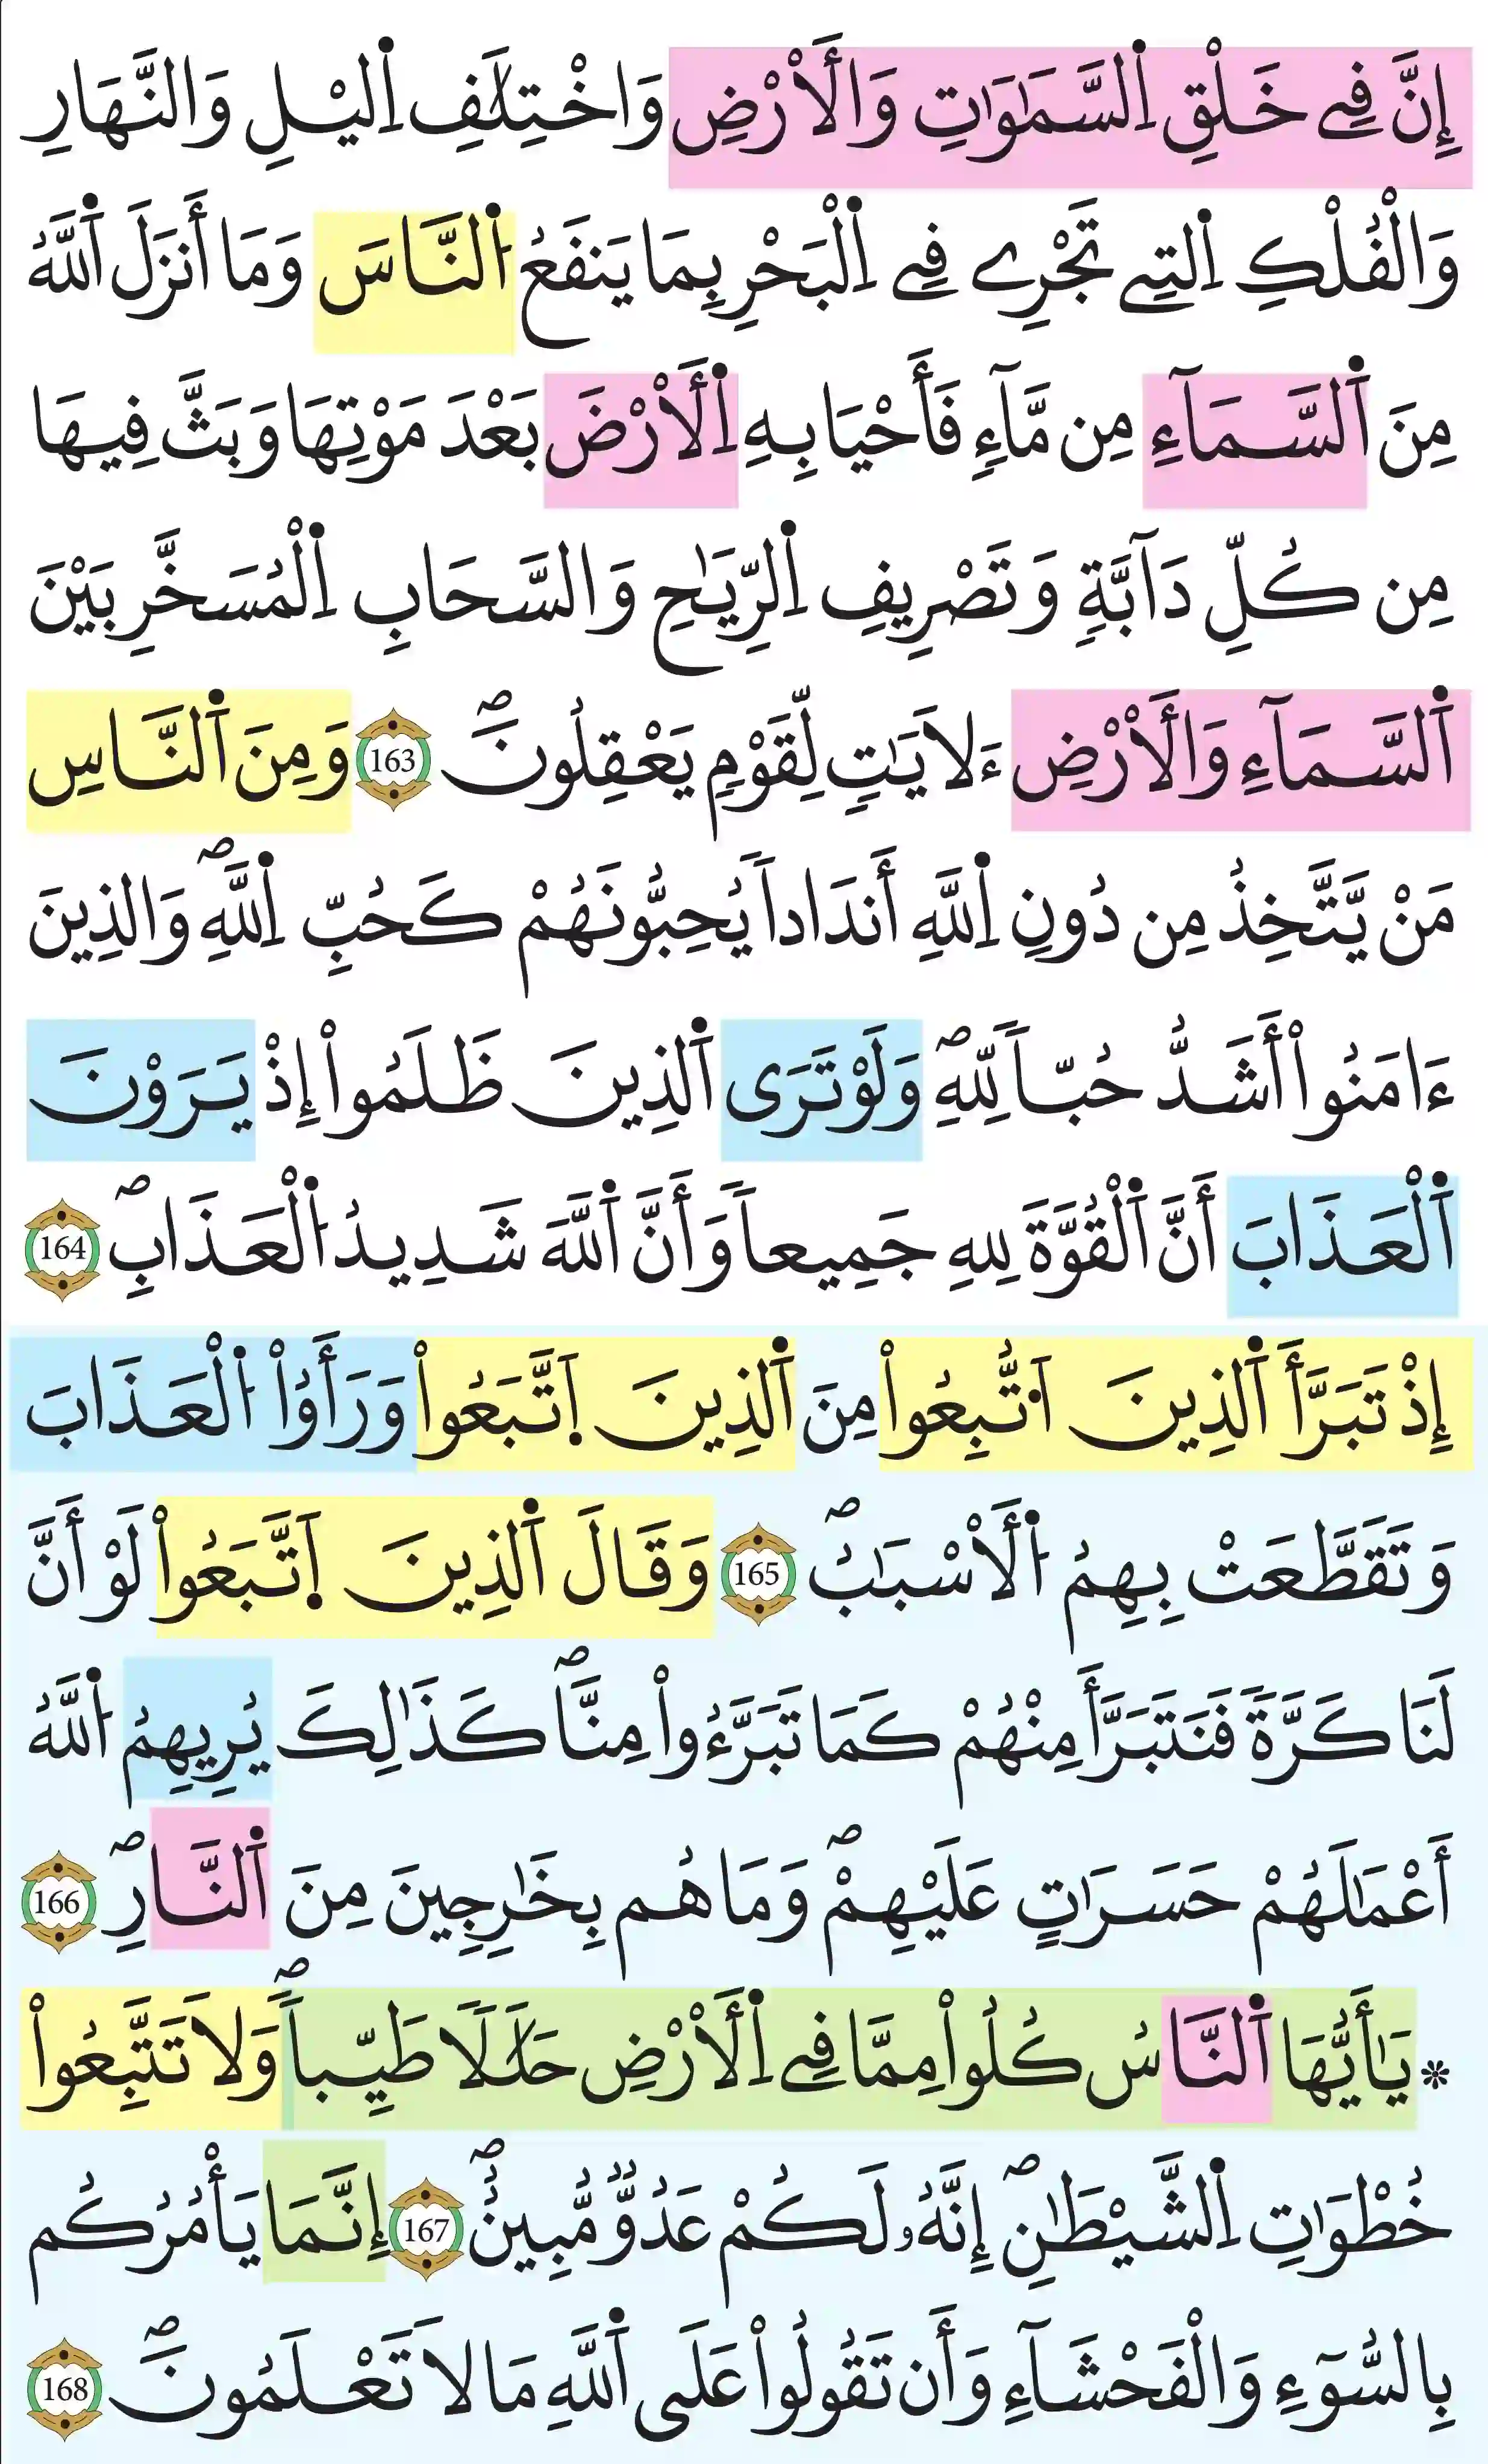 إِنَّ فِے خَلْقِ اِ۬لسَّمَٰوَٰتِ وَالَارْضِ وَاخْتِلَٰفِ اِ۬ليْلِ وَالنَّهَارِ
وَالْفُلْكِ اِ۬لتِے تَجْرِے فِے اِ۬لْبَحْرِ بِمَا يَنفَعُ اُ۬لنَّاسَ وَمَا أَنزَلَ اَ۬للَّهُ
مِنَ اَ۬لسَّمَآءِ مِن مَّآءٖ فَأَحْيَا بِهِ اِ۬لَارْضَ بَعْدَ مَوْتِهَا وَبَثَّ فِيهَا
مِن كُلِّ دَآبَّةٖ وَتَصْرِيفِ اِ۬لرِّيَٰحِ وَالسَّحَابِ اِ۬لْمُسَخَّرِ بَيْنَ
اَ۬لسَّمَآءِ وَالَارْضِ ءَلَايَٰتٖ لِّقَوْمٖ يَعْقِلُونَۖ 163 وَمِنَ اَ۬لنَّاسِ
مَنْ يَّتَّخِذُ مِن دُونِ اِ۬للَّهِ أَندَاداٗ يُحِبُّونَهُمْ كَحُبِّ اِ۬للَّهِۖ وَالذِينَ
ءَامَنُواْ أَشَدُّ حُبّاٗ لِّلهِۖ وَلَوْ تَرَى اَ۬لذِينَ ظَلَمُواْ إِذْ يَرَوْنَ
اَ۬لْعَذَابَ أَنَّ اَ۬لْقُوَّةَ لِلهِ جَمِيعاٗ وَأَنَّ اَ۬للَّهَ شَدِيدُ اُ۬لْعَذَابِۖ 164
إِذْ تَبَرَّأَ اَ۬لذِينَ اَ۟تُّبِعُواْ مِنَ اَ۬لذِينَ اَ۪تَّبَعُواْ وَرَأَوُاْ اُ۬لْعَذَابَ
وَتَقَطَّعَتْ بِهِمُ اُ۬لَاسْبَٰبُۖ 165 وَقَالَ اَ۬لذِينَ اَ۪تَّبَعُواْ لَوْ أَنَّ
لَنَا كَرَّةٗ فَنَتَبَرَّأَ مِنْهُمْ كَمَا تَبَرَّءُواْ مِنَّاۖ كَذَٰلِكَ يُرِيهِمُ اُ۬للَّهُ
أَعْمَٰلَهُمْ حَسَرَٰتٍ عَلَيْهِمْۖ وَمَا هُم بِخَٰرِجِينَ مِنَ اَ۬لنَّارِۖ 166
* يَٰأَيُّهَا اَ۬لنَّاسُ كُلُواْ مِمَّا فِے اِ۬لَارْضِ حَلَٰلاٗ طَيِّباٗۖ وَلَا تَتَّبِعُواْ
خُطْوَٰتِ اِ۬لشَّيْطَٰنِۖ إِنَّهُۥ لَكُمْ عَدُوّٞ مُّبِينٌۖ 167 إِنَّمَا يَأْمُرُكُم
بِالسُّوٓءِ وَالْفَحْشَآءِ وَأَن تَقُولُواْ عَلَى اَ۬للَّهِ مَا لَا تَعْلَمُونَۖ 168